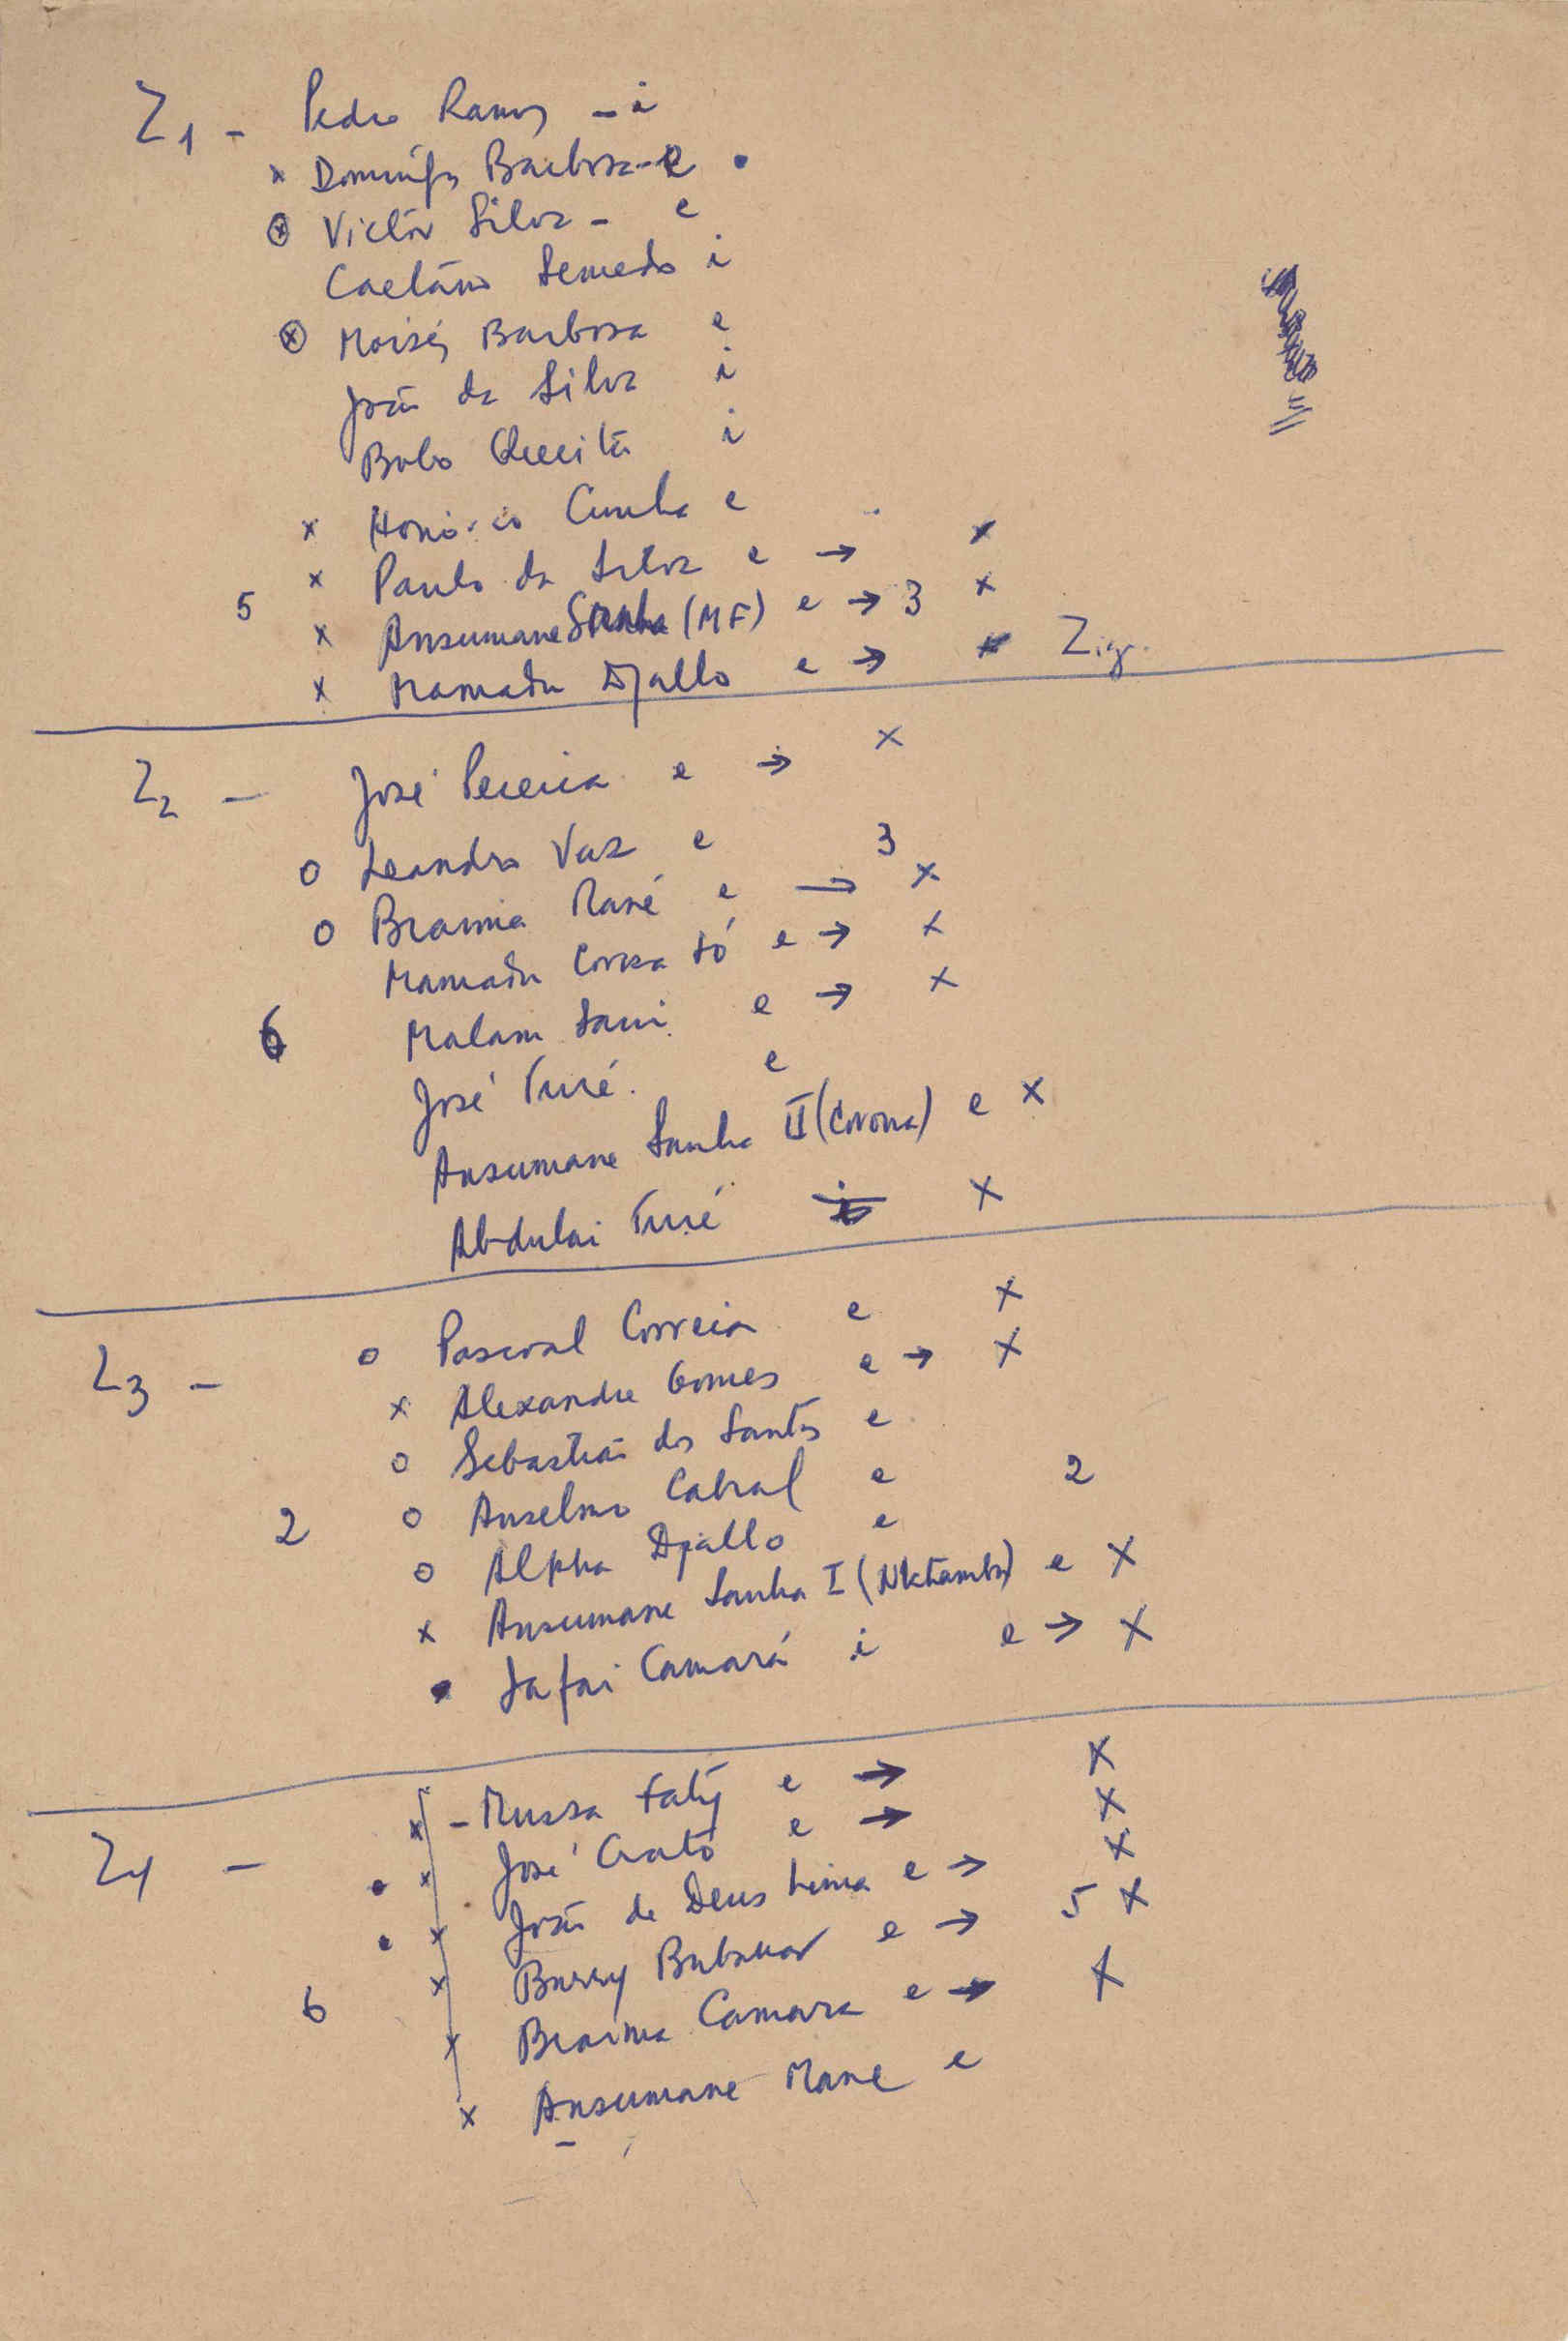 Z1 - Pedro Ramos - i
x Domingos Barbosa - e •
⊗ Victor Silva - e
Caetano Semedo i
⊗ Moisés Barbosa e
João da Silva i
Bobo Queitá i
x Honório Cunha e
x Paulo da Silva e → x
5 x Ansumane Sanha (MF) e → 3 x
x Mamadu Djallo e → x Zig.
Z2 - José Pereira e → x
o Leandro Vaz e 3
o Braima Mané e → x
Mamadu Corea Só e → x
6 Malam Sani e → x
José Turé e
Ansumane Sanha II (Corona) e x
Abdulai Turé x
Z3 - o Pascoal Correia e x
x Alexandre Gomes e → x
o Sebastião dos Santos e
2 o Anselmo Cabral e 2
o Alpha Djallo e
x Ansumane Sanha I e x
• Safai Camará i e → x
Z4 - x - Mussa Faty e → x
• x José Crato e → x
• x João de Deus Lima e → x
x Barry Bubakar e → 5 x
6 x Braima Camara e → x
x Ansumane Mane e